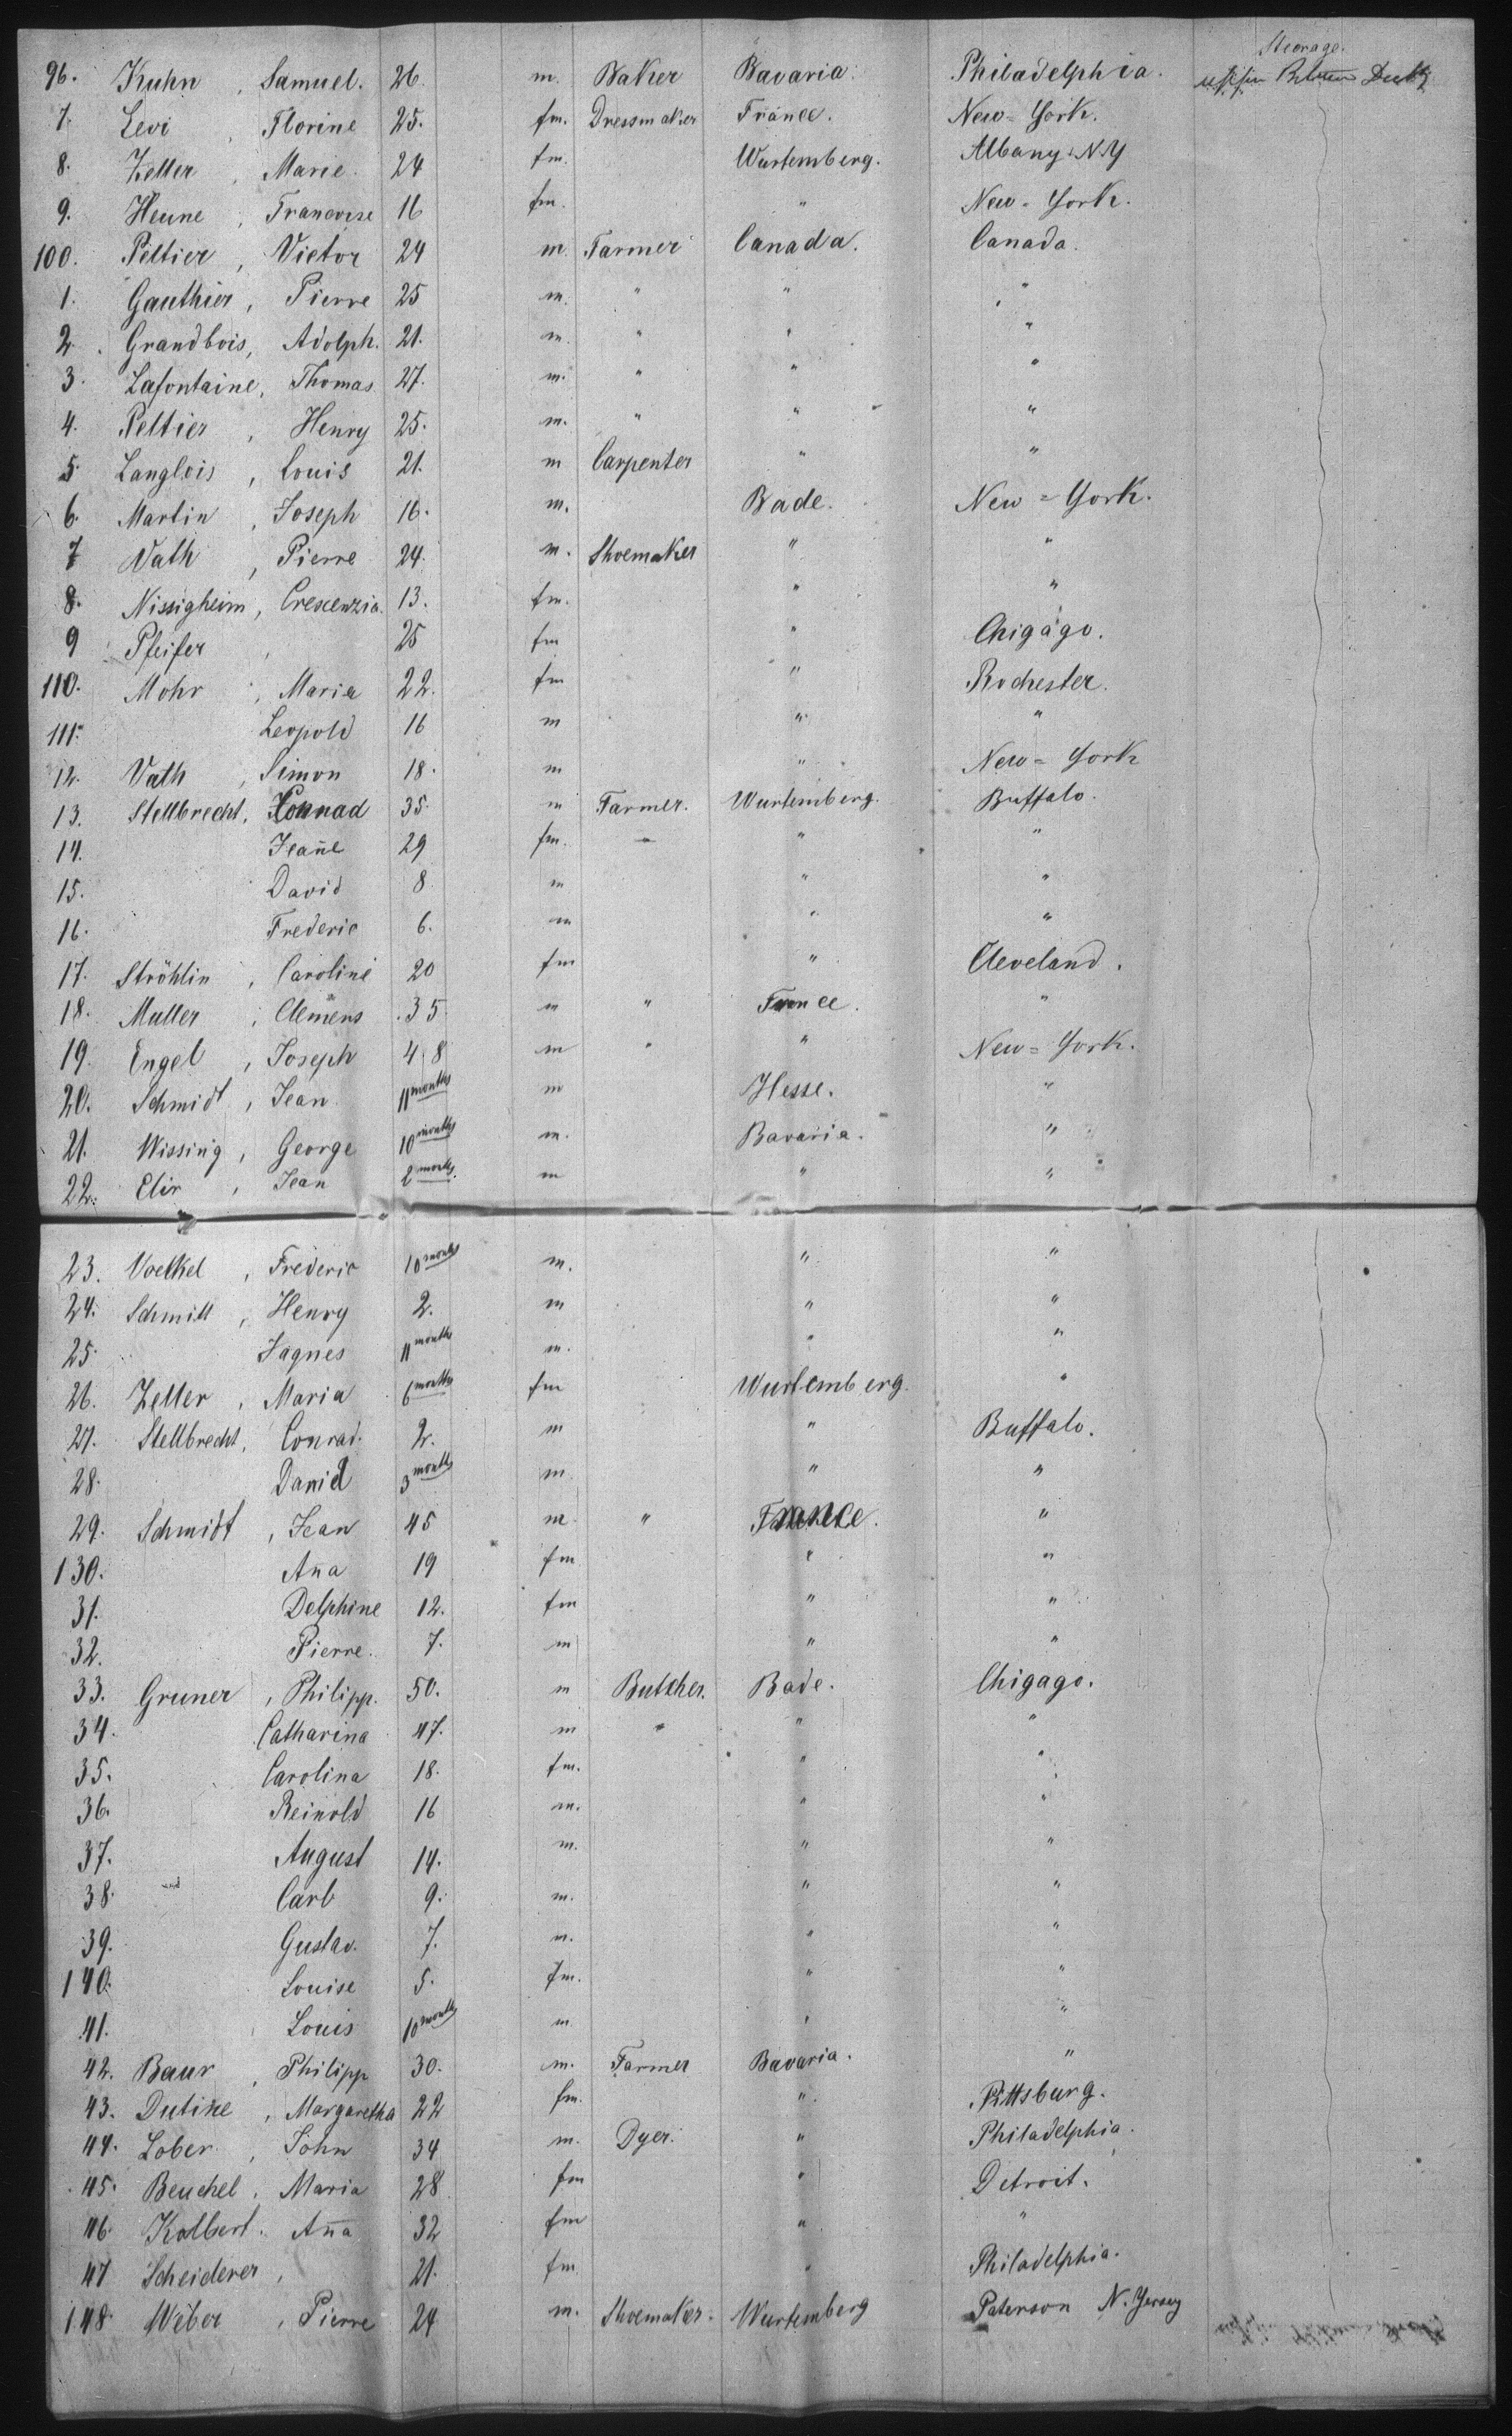 Steorage.
96. Kuhn , Samuel. 26. m. Baker Bavaria. Philadelphia. Between Deck
7. Levi , Florine 25. fm. Dressmaker France. New=York.
8. Zeller , Marie. 24 fm. Wurtemberg. Albany N.Y
9. Heune , Francoise 16 fm. " New=York.
100. Peltier , Victor 24 m. Farmer Canada. Canada.
1. Gauthier , Pierre 25 m. " " "
2. Grandbois, Adolph. 21. m. " " "
3. Lafontaine, Thomas 27. m. " " "
4. Peltier , Henry 25. m. " " "
5. Langlois , Louis 21. m Carpenter " "
6. Martin , Joseph 16. m. Bade. New=York.
7 Vath , Pierre 24. m. Shoemaker " "
8. Nissigheim, Crescenzia. 13. fm. " "
9 Pfeifer , 25 fm " Chigago.
110. Mohr , Maria 22. fm " Rochester.
111. Leopold 16 m " "
12. Vath , Simon 18. m " New=York
13. Stellbrecht, Konrad 35. m Farmer. Wurtemberg. Buffalo.
14. Jeañe 29 fm. " "
15. David 8 m " "
16. Frederic 6. m " "
17. Ströhlin , Caroline 20 fm " Cleveland.
18. Muller , Clemens 35 m " France. "
19. Engel , Joseph 48 m " " New=York.
20. Schmidt , Jean 11 months m Hesse. "
21. Wissing , George 10 months m. Bavaria. "
22. Elir , Jean 8 months. m " "
23. Voelkel , Frederic 10 months m. " "
24. Schmitt , Henry 2. m " "
25. Jagnes 11 months m. " "
26. Zeller , Maria 6 months fm Wurtemberg. "
27. Stellbrecht, Conrad. 2. m " Buffalo.
28. David 3 months m. " "
29. Schmidt , Jean 45 m. " France. "
130. Ana 19 fm " "
31. Delphine 12. fm " "
32. Pierre. 7. m " "
33. Gruner , Philipp. 50. m Butcher. Bade. Chigago.
34. Catharina 47. m " " "
35. Carolina 18. fm. " "
36. Reinold 16 m. " "
37. August 14. m. " "
38. Carl 9. m. " "
39. Gustav. 7. m. " "
140. Louise 5. fm. " "
41. Louis 10 months m. " "
42. Baur , Philipp 30. m. Farmer Bavaria. "
43. Dutine , Margaretha 22 fm. " Pittsburg.
44. Lober , John 34 m. Dyer. " Philadelphia.
45. Beuchel , Maria 28 fm " Detroit.
46. Kolbert. Aña 32 fm " "
47 Scheiderer , 21. fm. " Philadelphia.
148. Weber , Pierre 24 m. Shoemaker. Wurtemberg Paterson N. Yersey